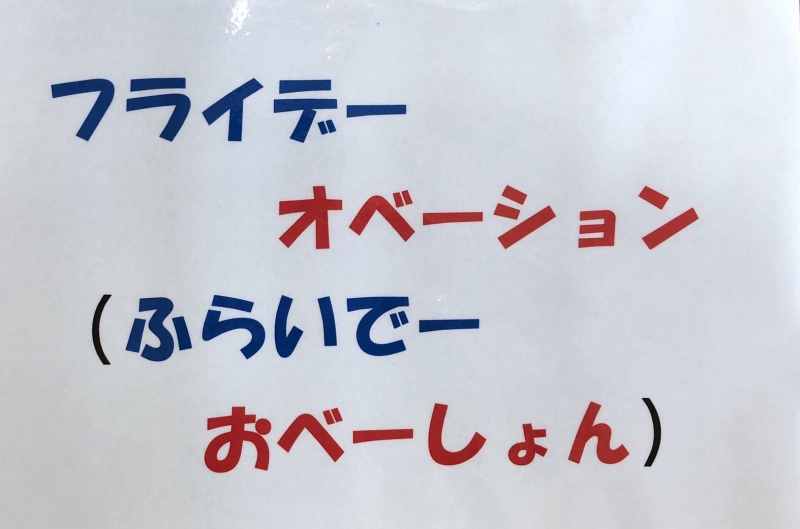 フライデー
オベーション
(ふらいでー
おべーしょん)